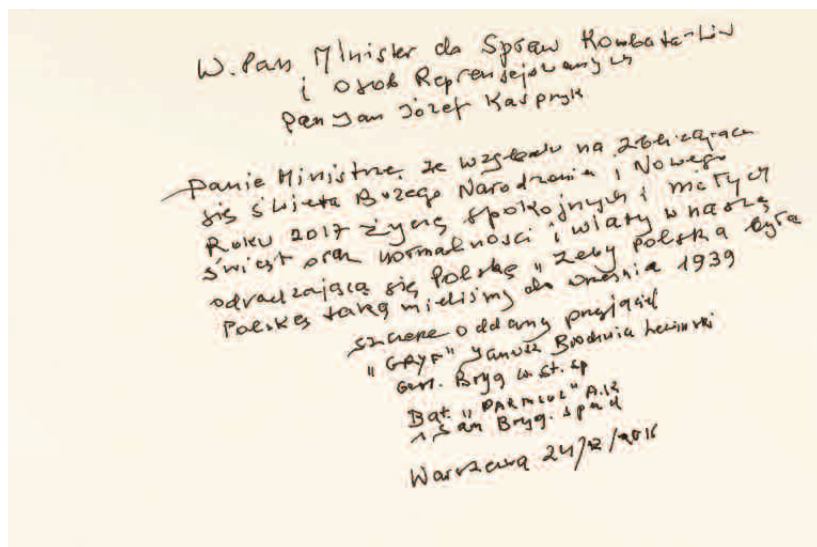 W. Pan Minister do Spraw Kombatantów
i Osob Reprensejowanych
Pan Jan Józef Kasprzyk
Panie Ministrze, ze względu na zbliżające
się święta Bożego Narodzenia i Nowego
Roku 2017 życzę spokojnych i miłych
świąt oraz normalności i wiary w naszą
odradzającą się Polskę "Żeby Polska była
Polską taką mieliśmy do września 1939
szczerze oddany przyjaciel
"GRYF" Janusz Brochwicz Lewiński
Gen. Bryg w st. sp
Bat. "PARASOL" A.K
1 Sam Bryg. spad
Warszawa 24/12/2016